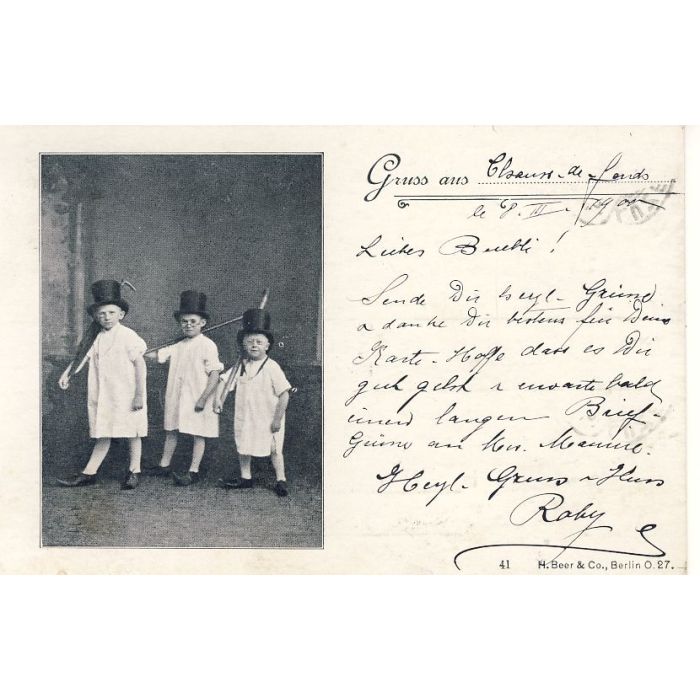 Gruss aus Chaux-de-fonds
le 8. III. 1900
Liebes Buebli!
Sende Dir herzl. Grüsse
u danke Dir bestens für Deine
Karte. Hoffe dass es Dir
gut geht u erwarte bald
einen langen Brief.
Grüsse an
Herzl. Gruss u Kuss
Roby
41 H. Beer & Co., Berlin O. 27.